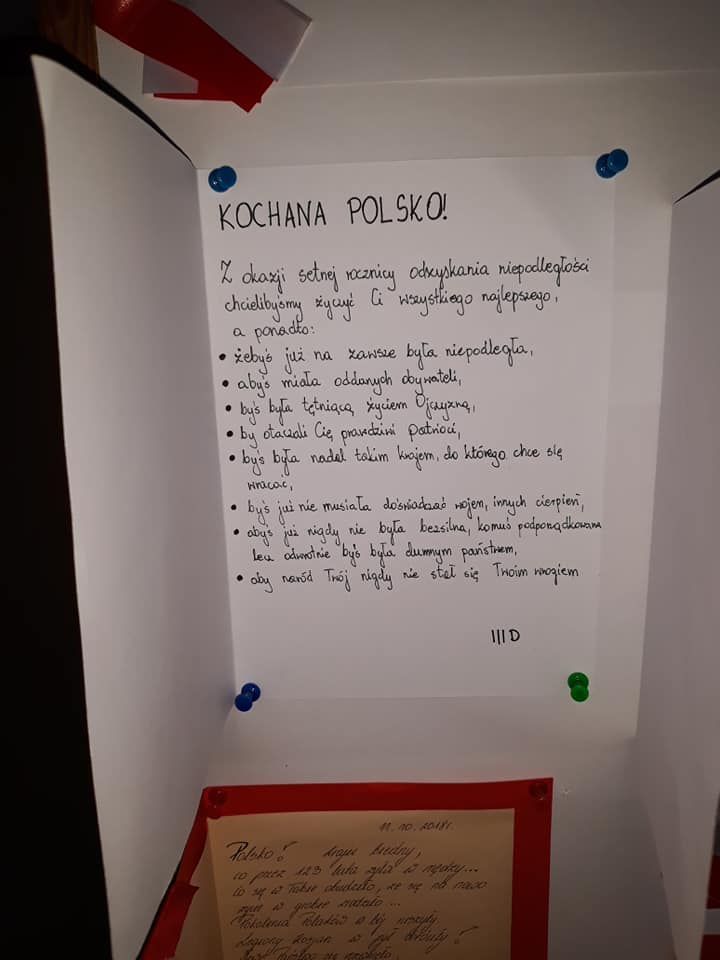 KOCHANA POLSKO!
Z okazji setnej rocznicy odzyskania niepodległości
chcielibyśmy życzyć Ci wszystkiego najlepszego,
a ponadto:
• żebyś już na zawsze była niepodległa,
• abyś miała oddanych obywateli,
• byś była tętniącą życiem Ojczyzną,
• by otaczali Cię prawdziwi Patrioci,
• byś była nadal takim krajem, do którego chce się
wracać,
• byś już nie musiała doświadzać wojen, innych cierpień,
• abyś już nigdy nie była bezsilna, komuś podporządkowana
lecz odwrotnie byś była dumnym państwem,
• aby naród Twój nigdy nie stał się Twoim wrogiem
III D
11.10.2018r.
Polsko! kraju biedny,
co przez 123 lata żyła w nędzy...
Co się w Tobie obudziło, że się na nowo
życie w grobie
Pokolenia Polaków o bój
Legiony w